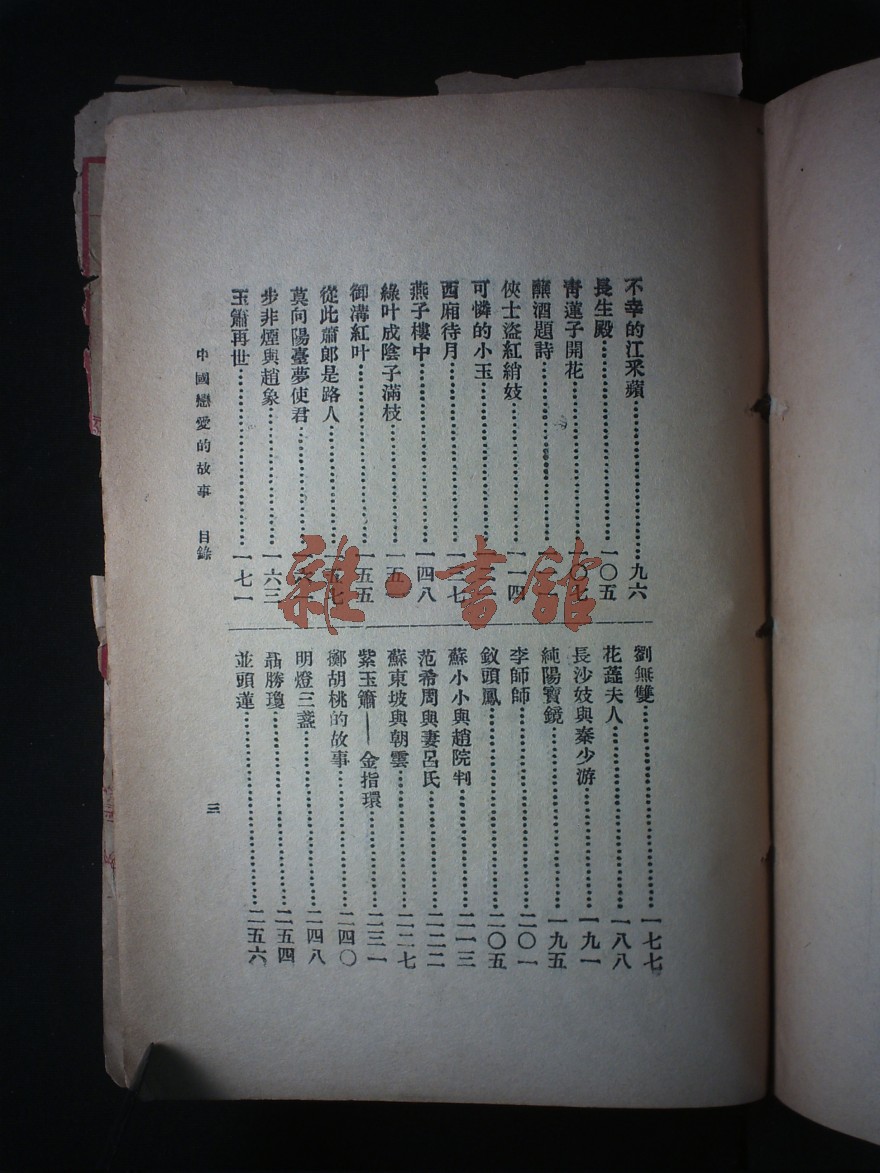 不幸的江釆蘋⋯⋯九六
長生殿⋯⋯一〇五
靑蓮子開花⋯⋯一〇七
蘸酒題詩⋯⋯一一
俠士盜紅綃妓⋯⋯一一四
可憐的小玉⋯⋯一二
西廂待月⋯⋯一三七
燕子樓中⋯⋯一四八
綠叶成陰子滿枝⋯⋯一五
御溝紅叶⋯⋯一五五
從此蕭郎是路人⋯⋯一五七
莫向陽臺夢使君⋯⋯一六
步非煙與趙象⋯⋯一六三
玉簫再世⋯⋯一七一
劉無雙⋯⋯一七七
花蕋夫人⋯⋯一八八
長沙妓與秦少游⋯⋯一九一
純陽寶鏡⋯⋯一九五
李師師⋯⋯二〇一
釵頭鳳⋯⋯二〇五
蘇小小與趙院判⋯⋯二一三
范希周與妻呂氏⋯⋯二二二
蘇東坡與朝雲⋯⋯二二七
紫玉簫——金指環⋯⋯二三一
擲胡桃的故事⋯⋯二四〇
明燈三盞⋯⋯二四八
聶勝瓊⋯⋯二五四
並頭蓮⋯⋯二五六
中國戀愛的故事 目錄
三
雜·書館